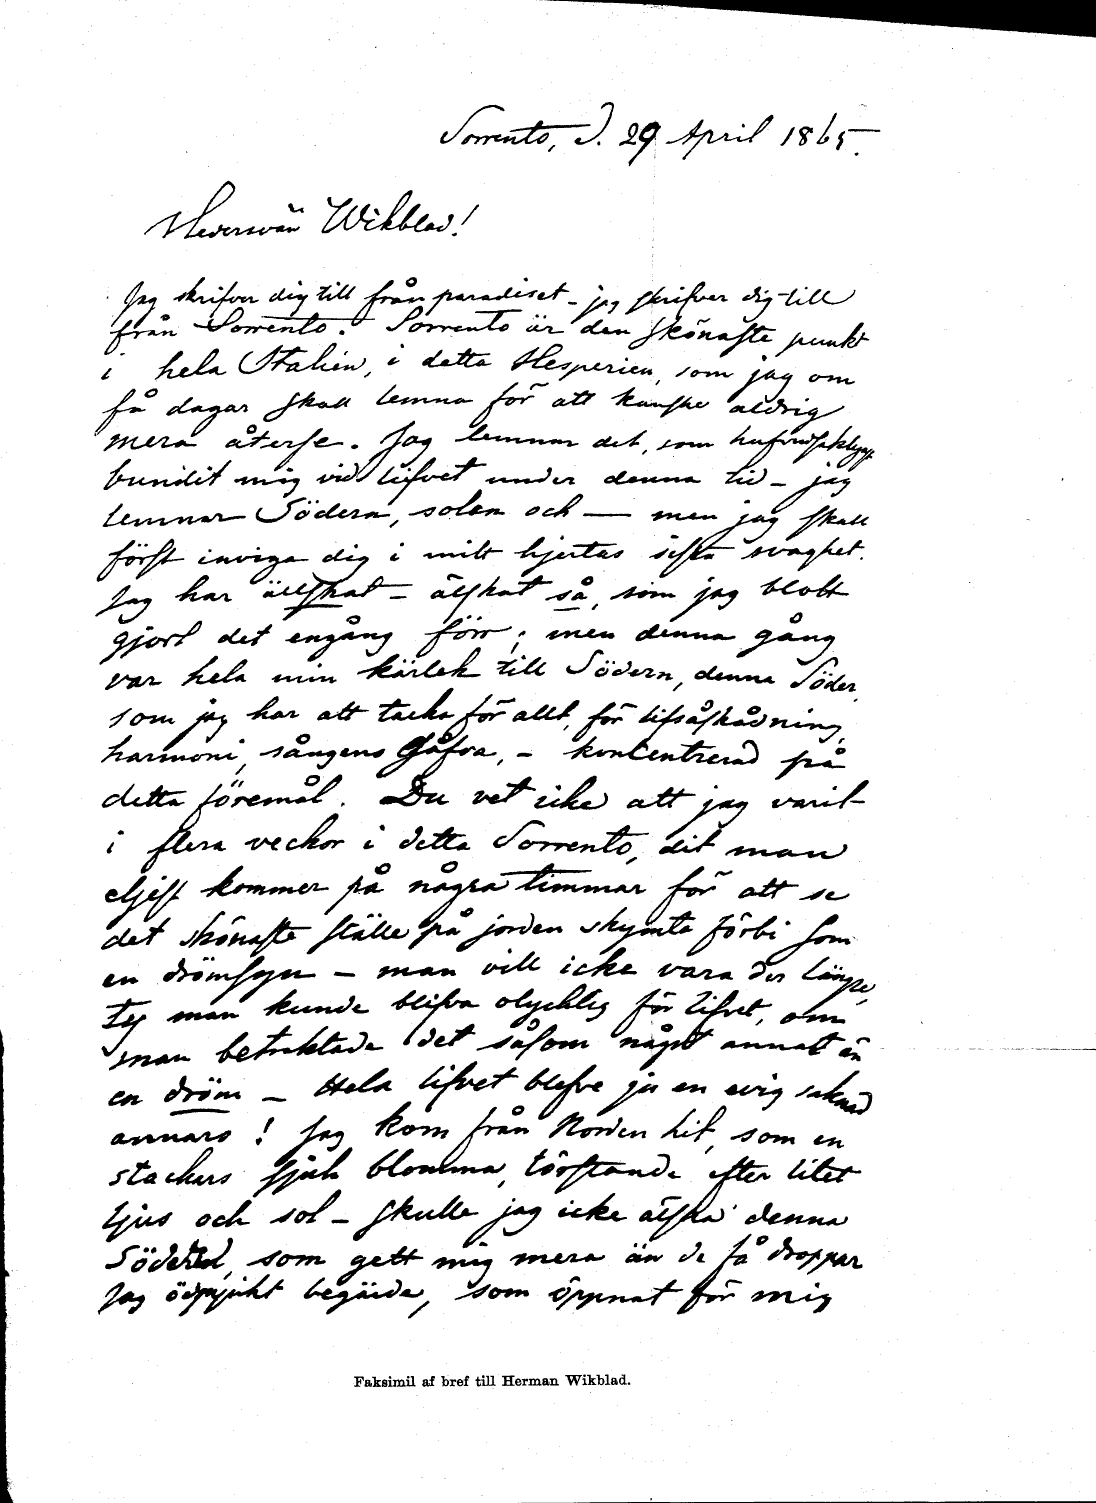 Sorrento, d. 29 April 1865.
Hedersvän Wikblad!
Jag skrifver dig till från paradiset – jag skrifver dig till
från Sorrento. Sorrento är den skönaste punkt
i hela Italien, i detta Hesperien, som jag om
få dagar skall lemna för att kanske aldrig
mera återse. Jag lemnar det, som
bundit mig vid lifvet under denna tid – jag
lemnar Södern, solen och — men jag skall
först inviga dig i mitt hjertas sista svaghet.
Jag har älskat – älskat så, som jag blott
gjort det engång förr; men denna gång
var hela min kärlek till Södern, denna Söder,
som jag har att tacka för allt, för lifsåskådning,
harmoni, sångens gåfva, – koncentrerad på
detta föremål. Du vet icke att jag varit
i flera veckor i detta Sorrento, dit man
eljest kommer på några timmar för att se
det skönaste ställe på jorden skymta förbi som
en drömsyn – man vill icke vara der längre,
ty man kunde blifva olycklig för lifvet, om
man betraktade det såsom något annat än
en dröm – Hela lifvet blefve ju en evig saknad
annars! Jag kom från Norden hit, som en
stackars sjuk blomma, törstande efter litet
ljus och sol – skulle jag icke älska denna
Söder, som gett mig mera än de få droppar
jag ödmjukt begärde, som öppnat för mig
Faksimil af bref till Herman Wikblad.